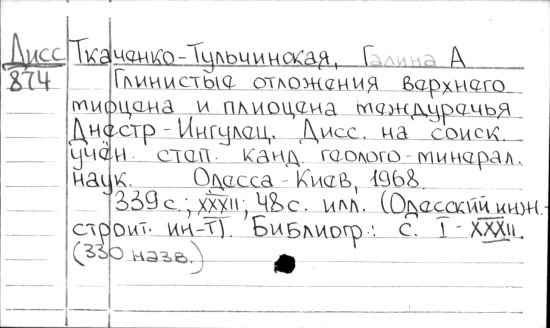 Дисс Ткаченко-Тульчинская, Галина А
874 Глинистые отложения верхнего
миоцена и плиоцена междуречья
Днестр-Ингулец. Дисс. на соиск.
учен. степ. канд. геолого-минерал.
наук. Одесса-Киев, 1968.
339 с.; XXXII; 48 с. илл. (Одесский инж.-
строит. ин-т). Библиогр.: с. I-XXXII.
(330 назв.)